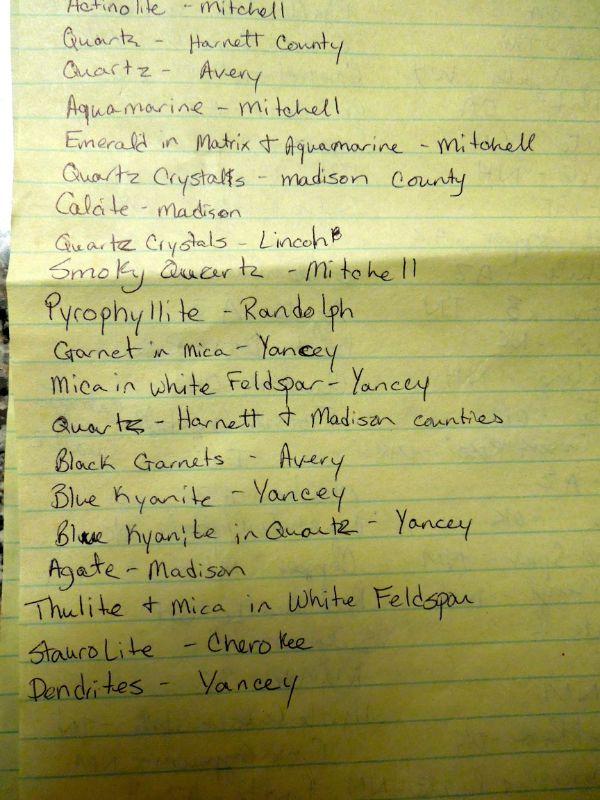 Actinolite - Mitchell
Quartz - Harnett County
Quartz - Avery
Aquamarine - Mitchell
Emerald in Matrix + Aquamarine - Mitchell
Quartz Crystals - Madison County
Calcite - Madison
Quartz Crystals - Lincoln
Smoky Quartz - Mitchell
Pyrophyllite - Randolph
Garnet in Mica - Yancey
Mica in White Feldspar - Yancey
Quartz - Harnett + Madison counties
Black Garnets - Avery
Blue Kyanite - Yancey
Blue Kyanite in Quartz - Yancey
Agate - Madison
Thulite + Mica in White Feldspar
Staurolite - Cherokee
Dendrites - Yancey